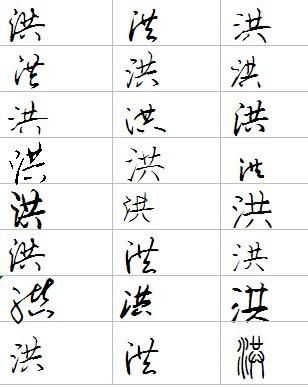 洪 洪 洪
洪 洪 洪
洪 洪 洪
洪 洪 洪
洪 洪 洪
洪 洪 洪
洪 洪 洪
洪 洪 洪